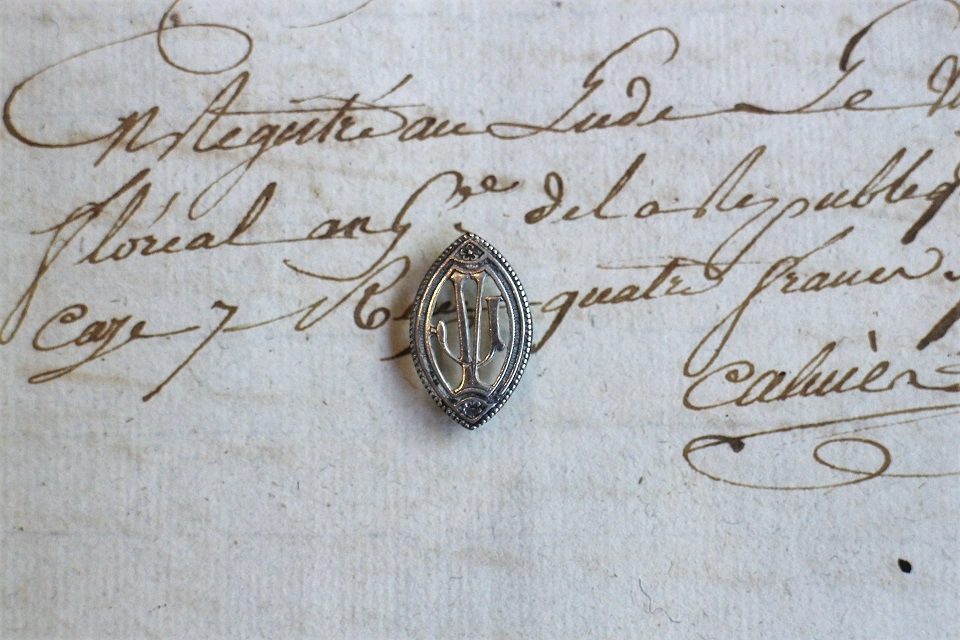 Enregistré au Lude Le
floréal an 6.e de la Republiq
Case 7 R quatre francs
Cahuèr